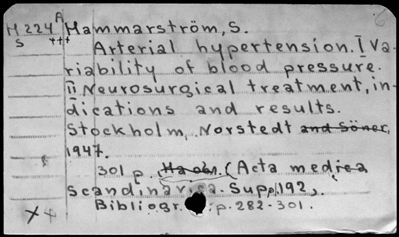 M 224 A Hammarström, S.
S +++ Arterial hypertension. I Va-
riability of blood pressure.
II Neurosurgical treatment, in-
dications and results.
Stockholm, Norstedt and Söner,
1947.
301 p. (Acta medica
Scandinavica. Suppl. 192).
Bibliogr.: p. 282-301.